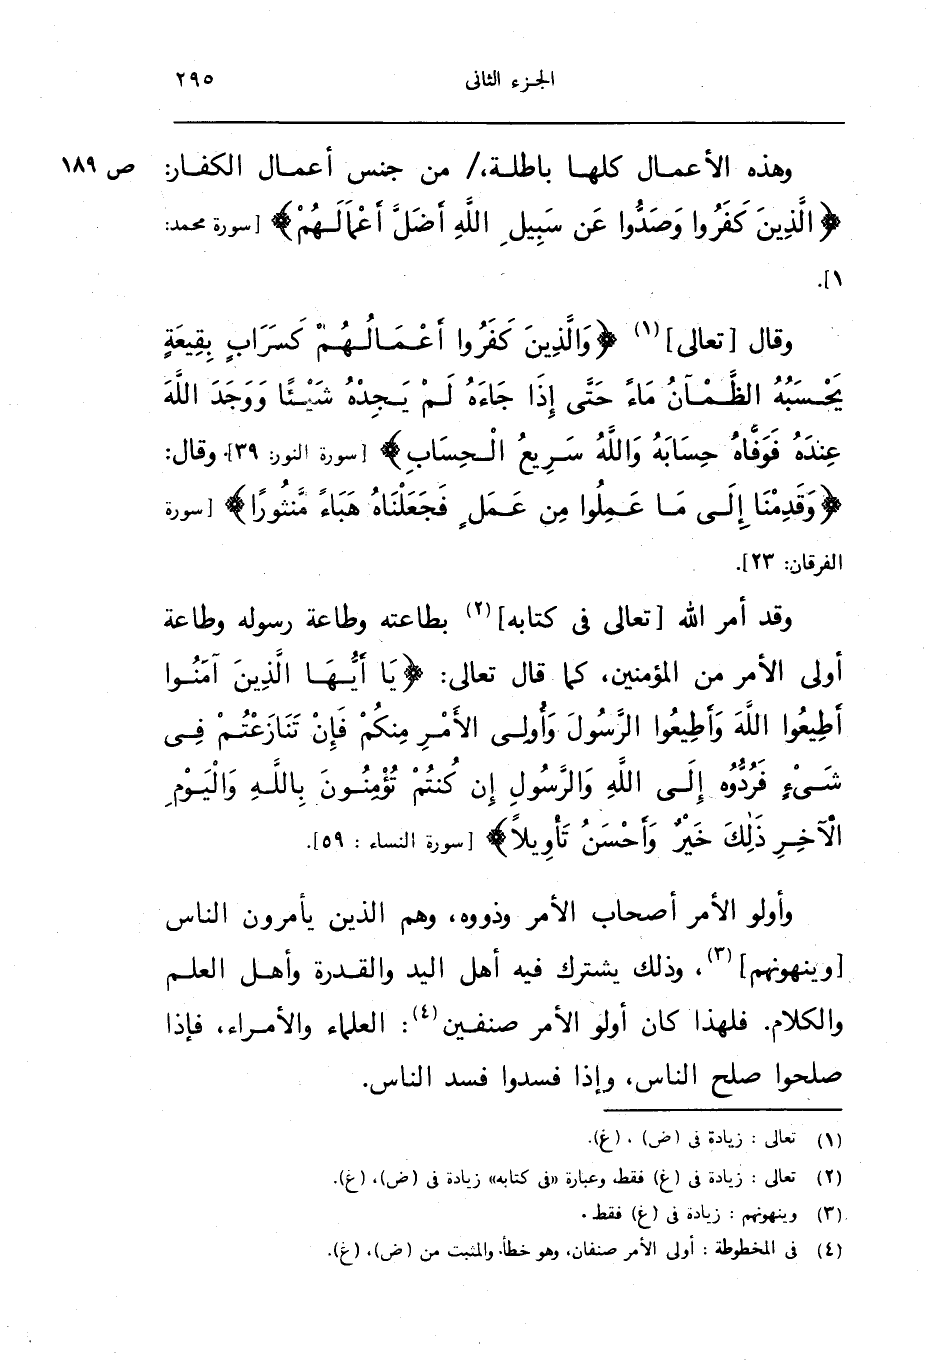 الجزء الثانى ٢٩٥
وهذه الأعمال كلها باطلة،/ من جنس أعمال الكفار: ص ١٨٩
﴿الَّذِينَ كَفَرُوا وَصَدُّوا عَن سَبِيلِ اللَّهِ أَضَلَّ أَعْمَالَهُمْ﴾ [سورة محمد:
١].
وقال [تعالى](١) ﴿وَالَّذِينَ كَفَرُوا أَعْمَالُهُمْ كَسَرَابٍ بِقِيعَةٍ
يَحْسَبُهُ الظَّمْآنُ مَاءً حَتَّى إِذَا جَاءَهُ لَمْ يَجِدْهُ شَيْئًا وَوَجَدَ اللَّهَ
عِندَهُ فَوَفَّاهُ حِسَابَهُ وَاللَّهُ سَرِيعُ الْحِسَابِ﴾ [سورة النور: ٣٩]. وقال:
﴿وَقَدِمْنَا إِلَى مَا عَمِلُوا مِن عَمَلٍ فَجَعَلْنَاهُ هَبَاءً مَّنثُورًا﴾ [سورة
الفرقان: ٢٣].
وقد أمر الله [تعالى فى كتابه](٢) بطاعته وطاعة رسوله وطاعة
أولى الأمر من المؤمنين، كما قال تعالى: ﴿يَا أَيُّهَا الَّذِينَ آمَنُوا
أَطِيعُوا اللَّهَ وَأَطِيعُوا الرَّسُولَ وَأُولِى الأَمْرِ مِنكُمْ فَإِنْ تَنَازَعْتُمْ فِى
شَىْءٍ فَرُدُّوهُ إِلَى اللَّهِ وَالرَّسُولِ إِن كُنتُمْ تُؤْمِنُونَ بِاللَّهِ وَالْيَوْمِ
الْآخِرِ ذَلِكَ خَيْرٌ وَأَحْسَنُ تَأْوِيلاً﴾ [سورة النساء : ٥٩].
وأولو الأمر أصحاب الأمر وذووه، وهم الذين يأمرون الناس
[وينهونهم](٣)، وذلك يشترك فيه أهل اليد والقدرة وأهل العلم
والكلام. فلهذا كان أولو الأمر صنفين(٤): العلماء والأمراء، فإذا
صلحوا صلح الناس، وإذا فسدوا فسد الناس.
(١) تعالى : زيادة فى (ض) ، (غ).
(٢) تعالى : زيادة فى (غ) فقط، وعبارة «فى كتابه» زيادة فى (ض)، (غ).
(٣) وينهونهم : زيادة فى (غ) فقط.
(٤) فى المخطوطة : أولى الأمر صنفان، وهو خطأ. والمثبت من (ض)، (غ).